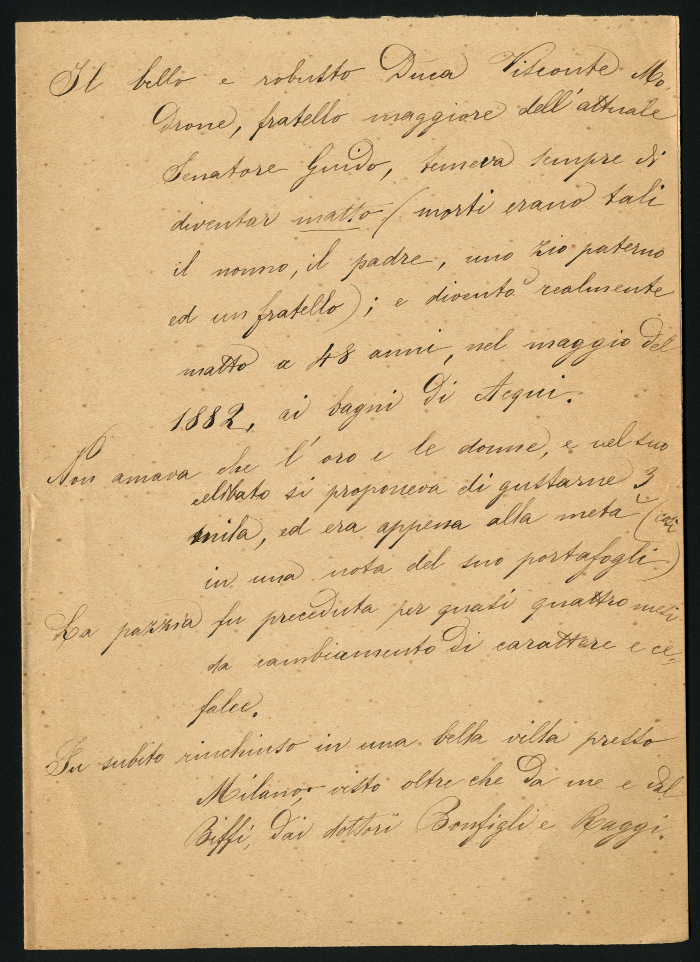 Il bello e robusto Duca Visconte Mo-
drone, fratello maggiore dell'attuale
Senatore Guido, temeva sempre di
diventar matto (morti erano tali
il nonno, il padre, uno zio paterno
ed un fratello); e diventò realmente
matto a 48 anni, nel maggio del
1882, ai bagni di Acqui.
Non amava che l'oro e le donne, e nel suo
celibato si proponeva di gustarne 3
mila, ed era appena alla metà (così
in una nota del suo portafogli)
La pazzia fu preceduta per quasi quattro mesi
da cambiamento di carattere e ce-
falee.
Fu subito rinchiuso in una bella villa presso
Milano, visto oltre che da me e dal
Biffi, dai dottori Bonfigli e Raggi.